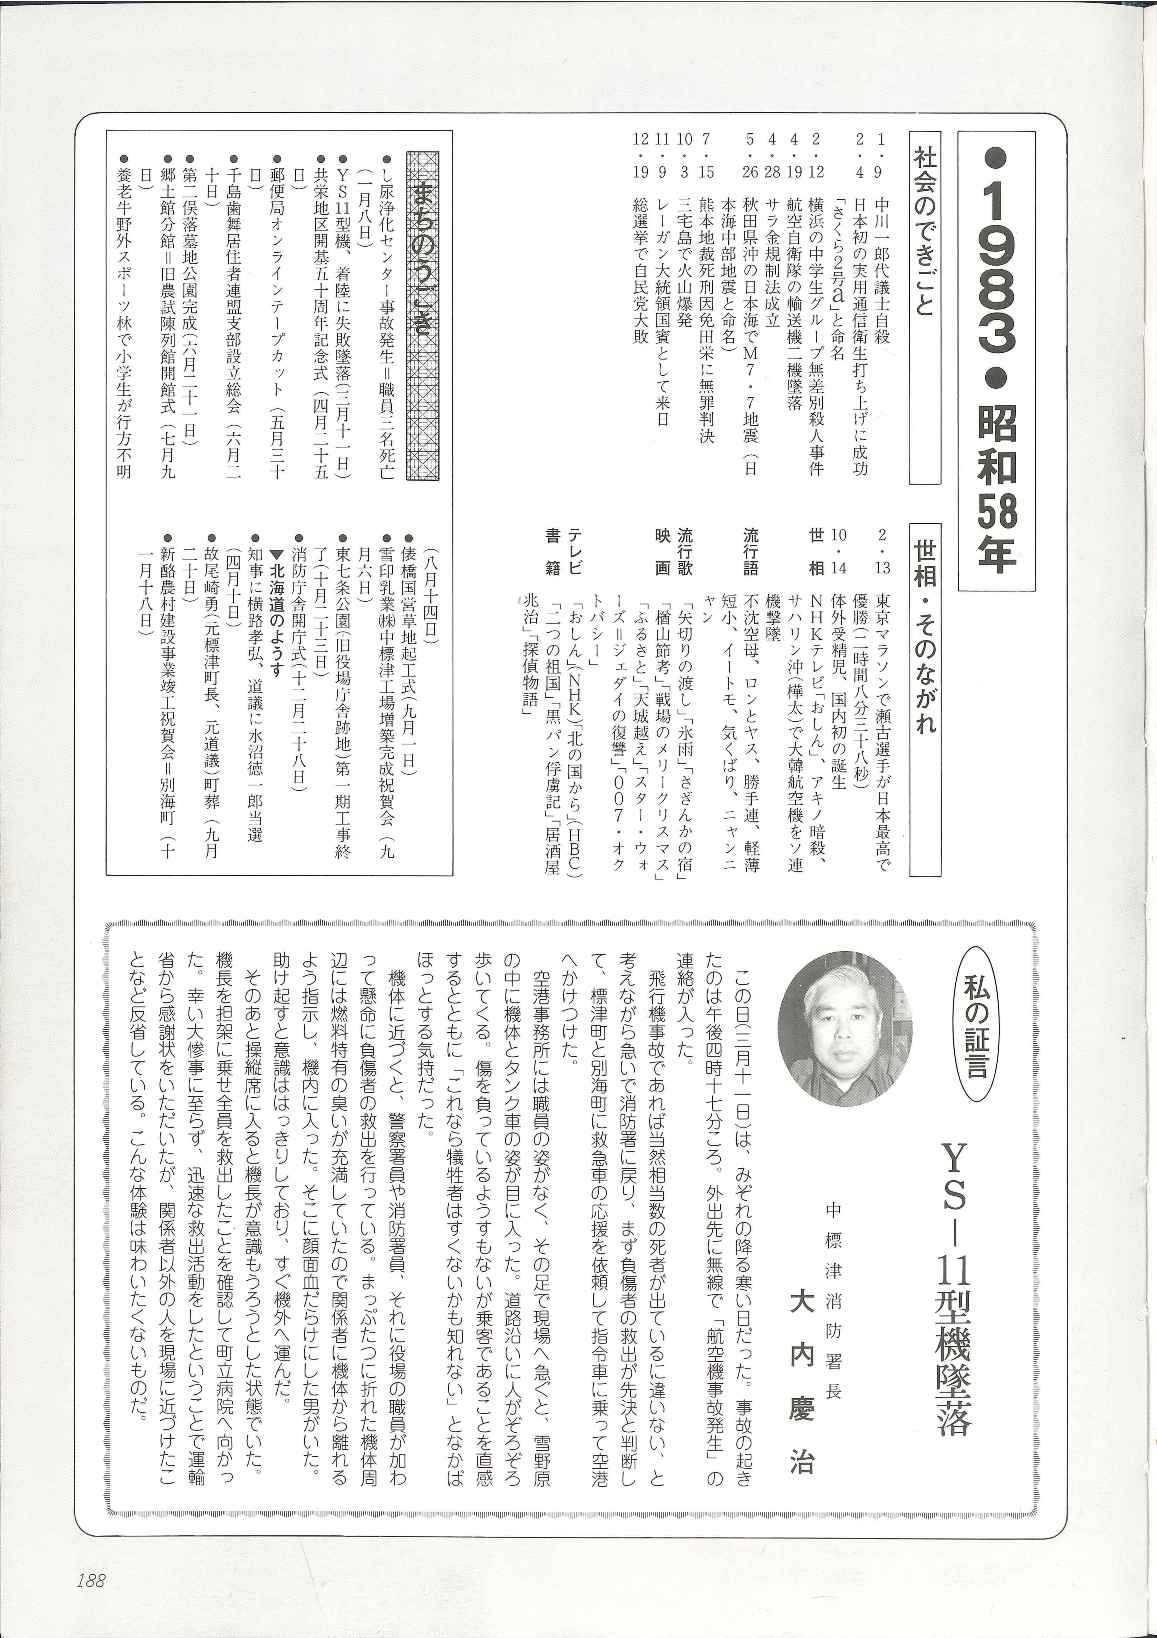 ●1983●昭和58年
社会のできごと
1・9 中川一郎代議士自殺
2・4 日本初の実用通信衛生打ち上げに成功
「さくら2号a」と命名
2・12 横浜の中学生グループ無差別殺人事件
4・19 航空自衛隊の輸送機二機墜落
4・28 サラ金規制法成立
5・26 秋田県沖の日本海でM7・7地震（日
本海中部地震と命名）
7・15 熊本地裁死刑囚免田栄に無罪判決
10・3 三宅島で火山爆発
11・9 レーガン大統領国賓として来日
12・19 総選挙で自民党大敗
世相・そのながれ
2・13 東京マラソンで瀬古選手が日本最高で
優勝（二時間八分三十八秒）
10・14 体外受精児、国内初の誕生
世相 NHKテレビ「おしん」、アキノ暗殺、
サハリン沖（樺太）で大韓航空機をソ連
機撃墜
流行語 不沈空母、ロンとヤス、勝手連、軽薄
短小、イートモ、気くばり、ニャンニ
ャン
流行歌 「矢切りの渡し」「氷雨」「さざんかの宿」
映画 「楢山節考」「戦場のメリークリスマス」
「ふるさと」「天城越え」「スター・ウォ
ーズ＝ジェダイの復讐」「007・オク
トパシー」
テレビ 「おしん」（NHK）「北の国から」（HBC）
書籍 「二つの祖国」「黒パン俘虜記」「居酒屋
兆治」「探偵物語」
まちのうごき
●し尿浄化センター事故発生＝職員三名死亡
（一月八日）
●YS11型機、着陸に失敗墜落（三月十一日）
●共栄地区開基五十周年記念式（四月二十五
日）
●郵便局オンラインテープカット（五月三十
日）
●千島歯舞居住者連盟支部設立総会（六月二
十日）
●第二俣落墓地公園完成（六月二十一日）
●郷土館分館＝旧農試陳列館開館式（七月九
日）
●養老牛野外スポーツ林で小学生が行方不明
（八月十四日）
●俵橋国営草地起工式（九月一日）
●雪印乳業㈱中標津工場増築完成祝賀会（九
月六日）
●東七条公園（旧役場庁舎跡地）第一期工事終
了（十月二十三日）
●消防庁舎開庁式（十二月二十八日）
▼北海道のようす
●知事に横路孝弘、道議に水沼徳一郎当選
（四月十日）
●故尾崎勇（元標津町長、元道議）町葬（九月
二十日）
●新酪農村建設事業竣工祝賀会＝別海町（十
一月十八日）
私の証言
YS－11型機墜落
中標津消防署長
大内慶治
この日（三月十一日）は、みぞれの降る寒い日だった。事故の起き
たのは午後四時十七分ころ。外出先に無線で「航空機事故発生」の
連絡が入った。
飛行機事故であれば当然相当数の死者が出ているに違いない、と
考えながら急いで消防署に戻り、まず負傷者の救出が先決と判断し
て、標津町と別海町に救急車の応援を依頼して指令車に乗って空港
へかけつけた。
空港事務所には職員の姿がなく、その足で現場へ急ぐと、雪野原
の中に機体とタンク車の姿が目に入った。道路沿いに人がぞろぞろ
歩いてくる。傷を負っているようすもないが乗客であることを直感
するとともに「これなら犠牲者はすくないかも知れない」となかば
ほっとする気持だった。
機体に近づくと、警察署員や消防署員、それに役場の職員が加わ
って懸命に負傷者の救出を行っている。まっぷたつに折れた機体周
辺には燃料特有の臭いが充満していたので関係者に機体から離れる
よう指示し、機内に入った。そこに顔面血だらけにした男がいた。
助け起すと意識ははっきりしており、すぐ機外へ運んだ。
そのあと操縦席に入ると機長が意識もうろうとした状態でいた。
機長を担架に乗せ全員を救出したことを確認して町立病院へ向かっ
た。幸い大惨事に至らず、迅速な救出活動をしたということで運輸
省から感謝状をいただいたが、関係者以外の人を現場に近づけたこ
となど反省している。こんな体験は味わいたくないものだ。
188